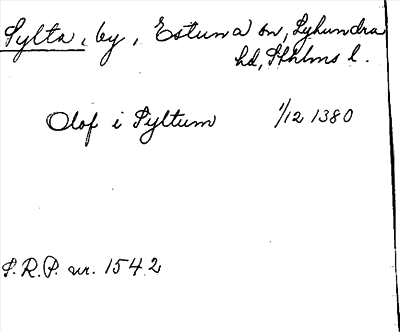 Sylta, by, Estuna sn, Lyhundra
hd, Sthlms l.
Olof i Syltum 1/12 1380
S.R.P. nr. 1542